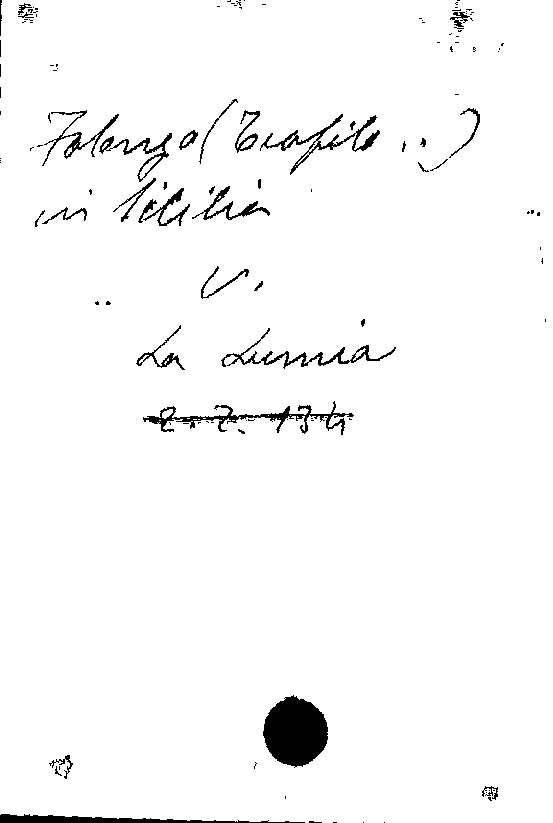 Folengo (Teofilo ..)
in Sicilia
V.
La Lumia
2. 7. 134